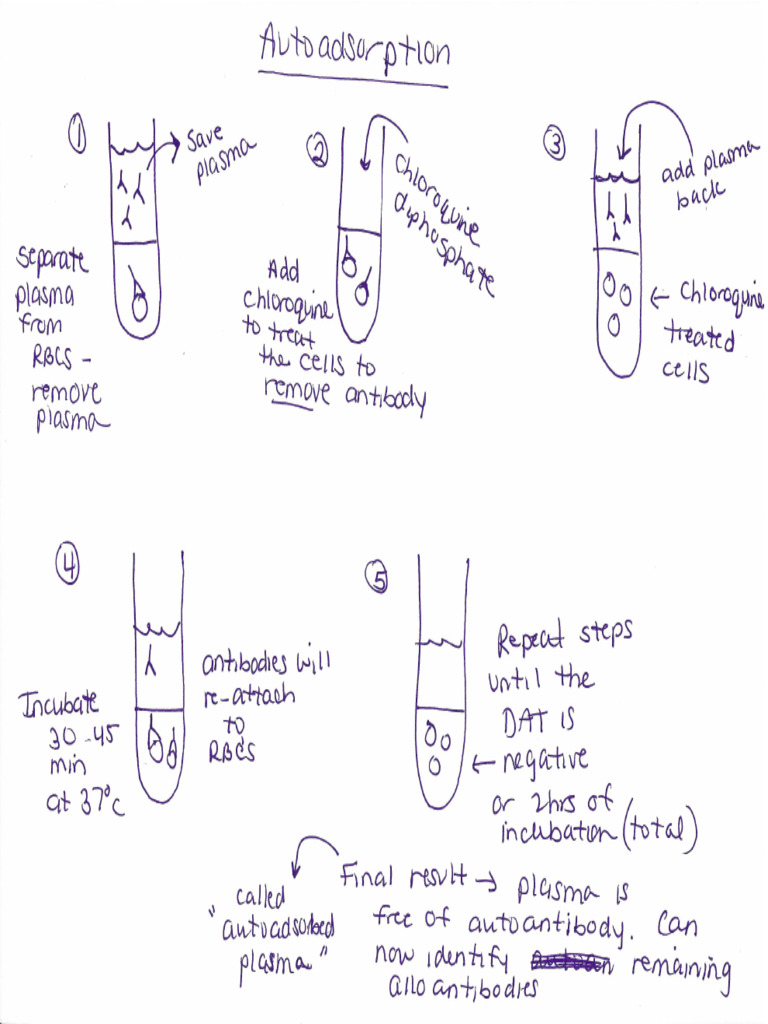 Autoadsorption
①
save
plasma
Separate
plasma
from
RBCS -
remove
plasma
②
Chloroquine
diphosphate
Add
chloroquine
to treat
the cells to
remove antibody
③
add plasma
back
← Chloroquine
treated
cells
④
Incubate
30-45
min
at 37°c
antibodies will
re-attach
to
RBCS
⑤
Repeat steps
until the
DAT is
← negative
or 2hrs of
incubation (total)
called
"autoadsorbed
plasma"
Final result → plasma is
free of autoantibody. Can
now identify remaining
alloantibodies